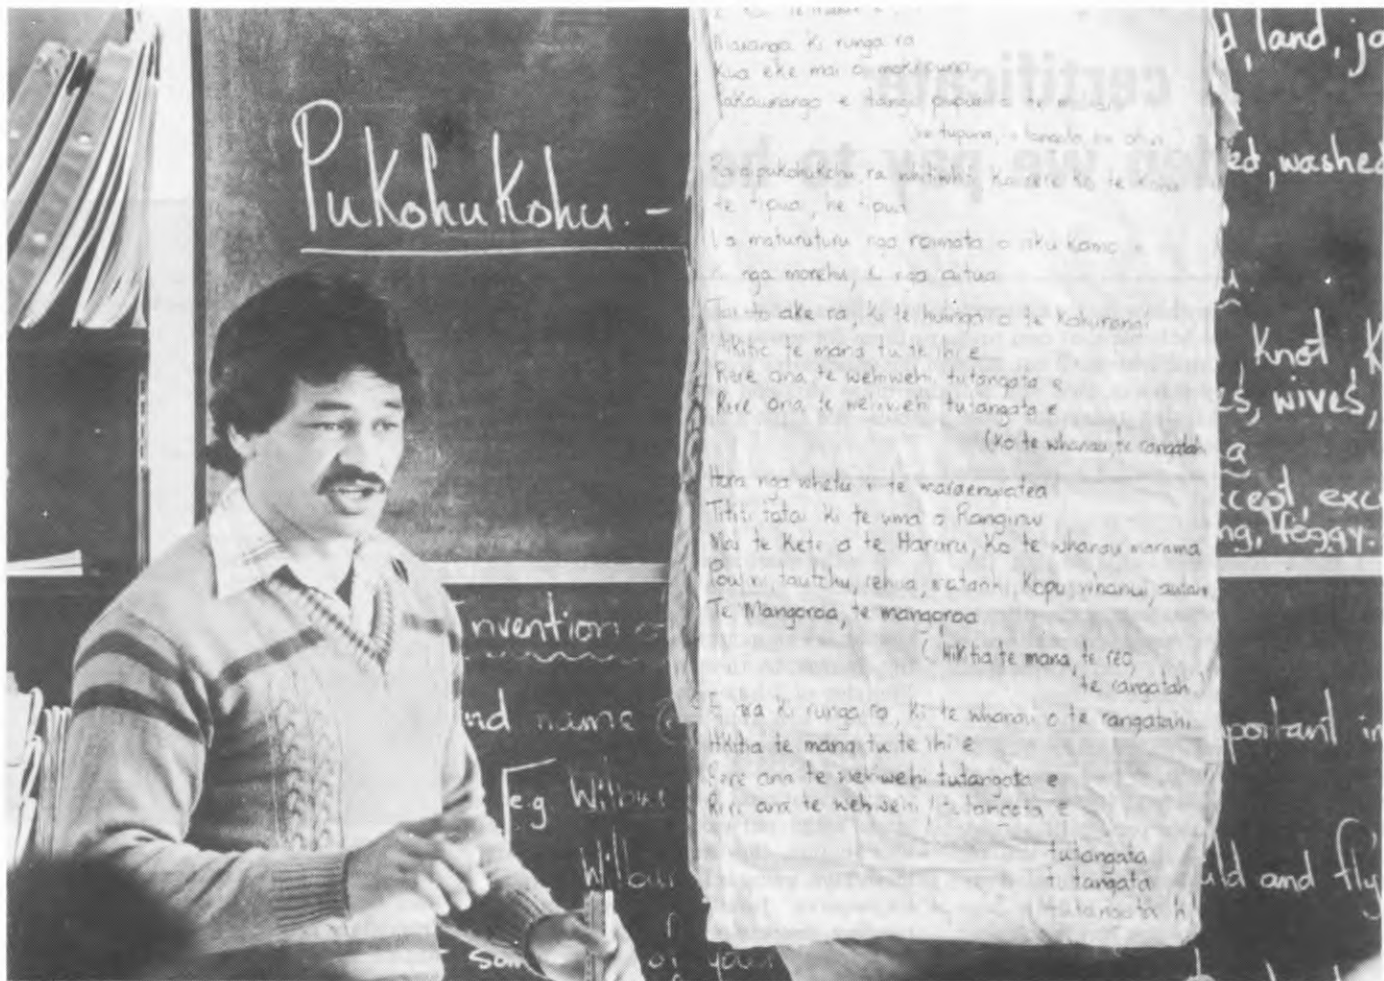 Pukohukohu. -
Maranga ki runga ra
Kua eke mai o mokopuna
e tangi o te
he tupuna, he tangata, he
pukohukohu, ra whitiwhiti, ka rere ko te
te tipua, he tipua
maturuturu nga roimata o aku kamo
Ki nga morehu, ki nga aitua
ake ra, ki te huinga o te Kahurangi
Hikitia te mana tu te ihi e
Rere ana te wehiwehi tutangata e
Rere ana te wehiwehi tutangata e
(Ko te whanau, te rangatahi
Hora nga whetu i te maraenuiatea
Tititi tatai ki te uma o Ranginui
Mai te Kete o te Haruru, Ko te whanau marama
tautohu, rehua, matariki, Kopu, whanui,
Te Mangoroa, te mangoroa
(hikitia te mana, te reo,
te rangatahi)
ki runga ra, ki te whanau o te rangatahi
Hikitia te mana tu te ihi e
Rere ana te wehiwehi tutangata e
Rere ana te wehiwehi tutangata e
tutangata
tutangata
tutangata h
d, land, jo
ed, washed
Knot K
es, wives,
a
xcept, exc
ng, foggy.
Invention o
nd name
portant in
e.g Wilbur
Wilbur
uld and fly
som
of your